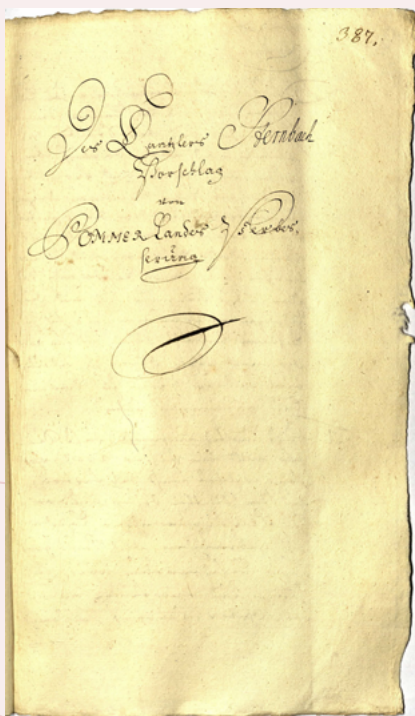 387.
Des Cantzlers Sternbach
Vorschlag
von
POMMER Landes Verbes,
serung